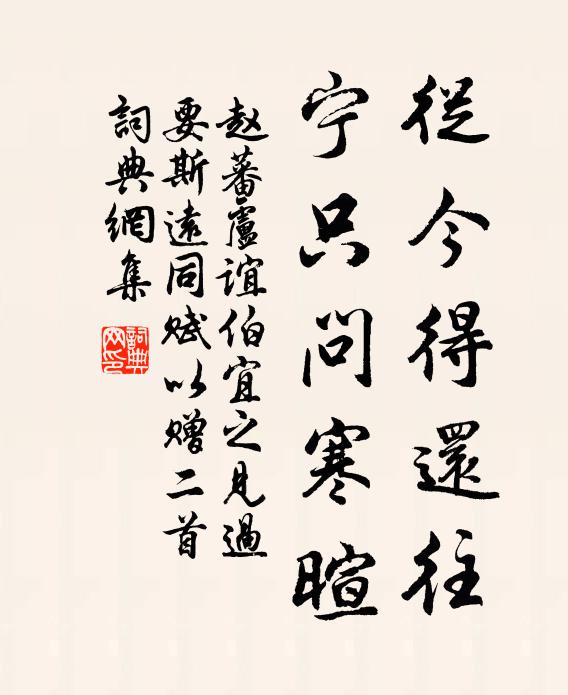 從今得還往
宁只問寒暄
赵蕃盧誼伯宜之見過
要斯遠同賦以贈二首
詞典網集
詞典網印